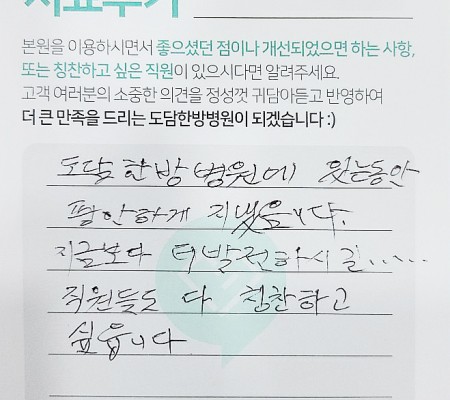 치료후기
본원을 이용하시면서 좋으셨던 점이나 개선되었으면 하는 사항,
또는 칭찬하고 싶은 직원이 있으시다면 알려주세요.
고객 여러분의 소중한 의견을 정성껏 귀담아듣고 반영하여
더 큰 만족을 드리는 도담한방병원이 되겠습니다 :)
도담한방병원에 있는동안
평안하게 지냈읍니다.
지금보다 더발전하시길.....
직원들도 다 칭찬하고
싶읍니다